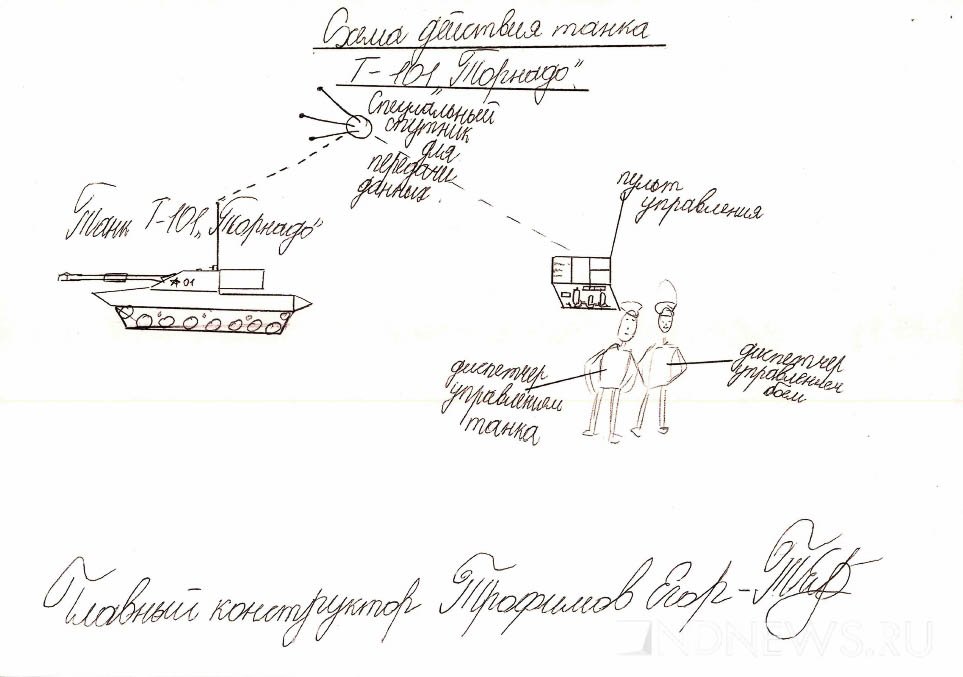 Схема действия танка
Т-101 „Торнадо"
Специальный
спутник
для
передачи
данных.
пульт
управления
Танк Т-101 „Торнадо"
01
диспетчер
управлением
танка
диспетчер
управлением
боем
Главный конструктор Трофимов Егор-
NDNEWS.RU